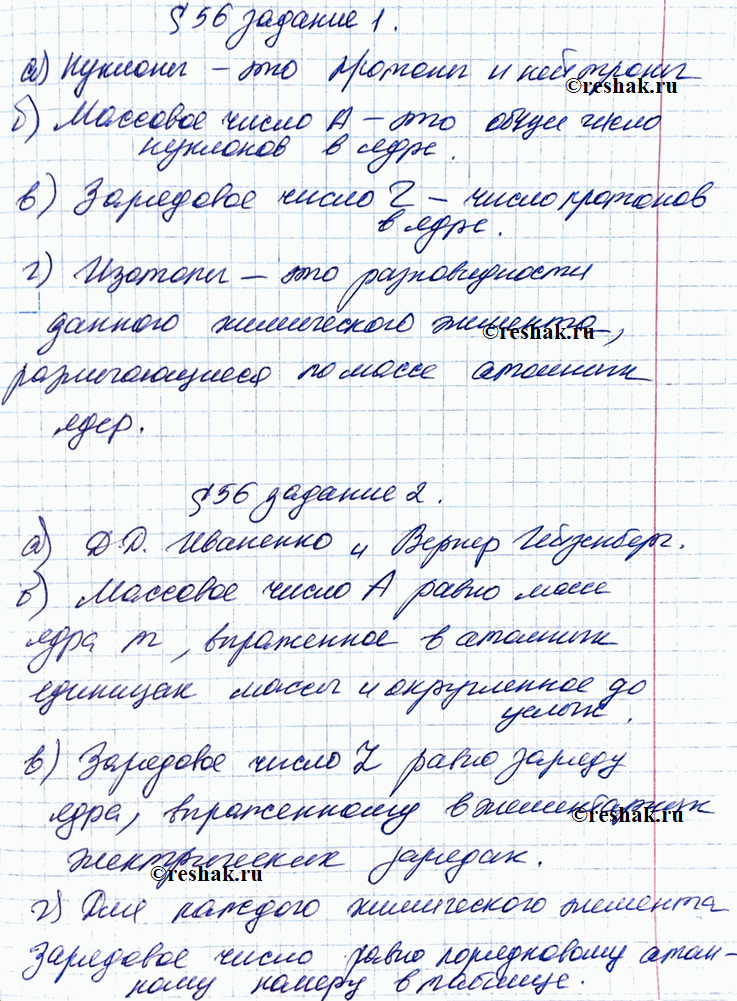 §56 задание 1.
а) Нуклоны – это протоны и нейтроны
©reshak.ru
б) Массовое число А – это общее число
нуклонов в ядре.
в) Зарядовое число Z – число протонов
в ядре.
г) Изотопы – это разновидности
данного химического элемента,
©reshak.ru
различающиеся по массе атомных
ядер.
§56 задание 2.
а) Д.Д. Иваненко и Вернер Гейзенберг.
б) Массовое число А равно массе
ядра m, выраженное в атомных
единицах массы и округленное до
целых.
в) Зарядовое число Z равно заряду
ядра, выраженному в элементарных
©reshak.ru
электрических зарядах.
©reshak.ru
г) Для каждого химического элемента
Зарядовое число равно порядковому атом-
ному номеру в таблице.